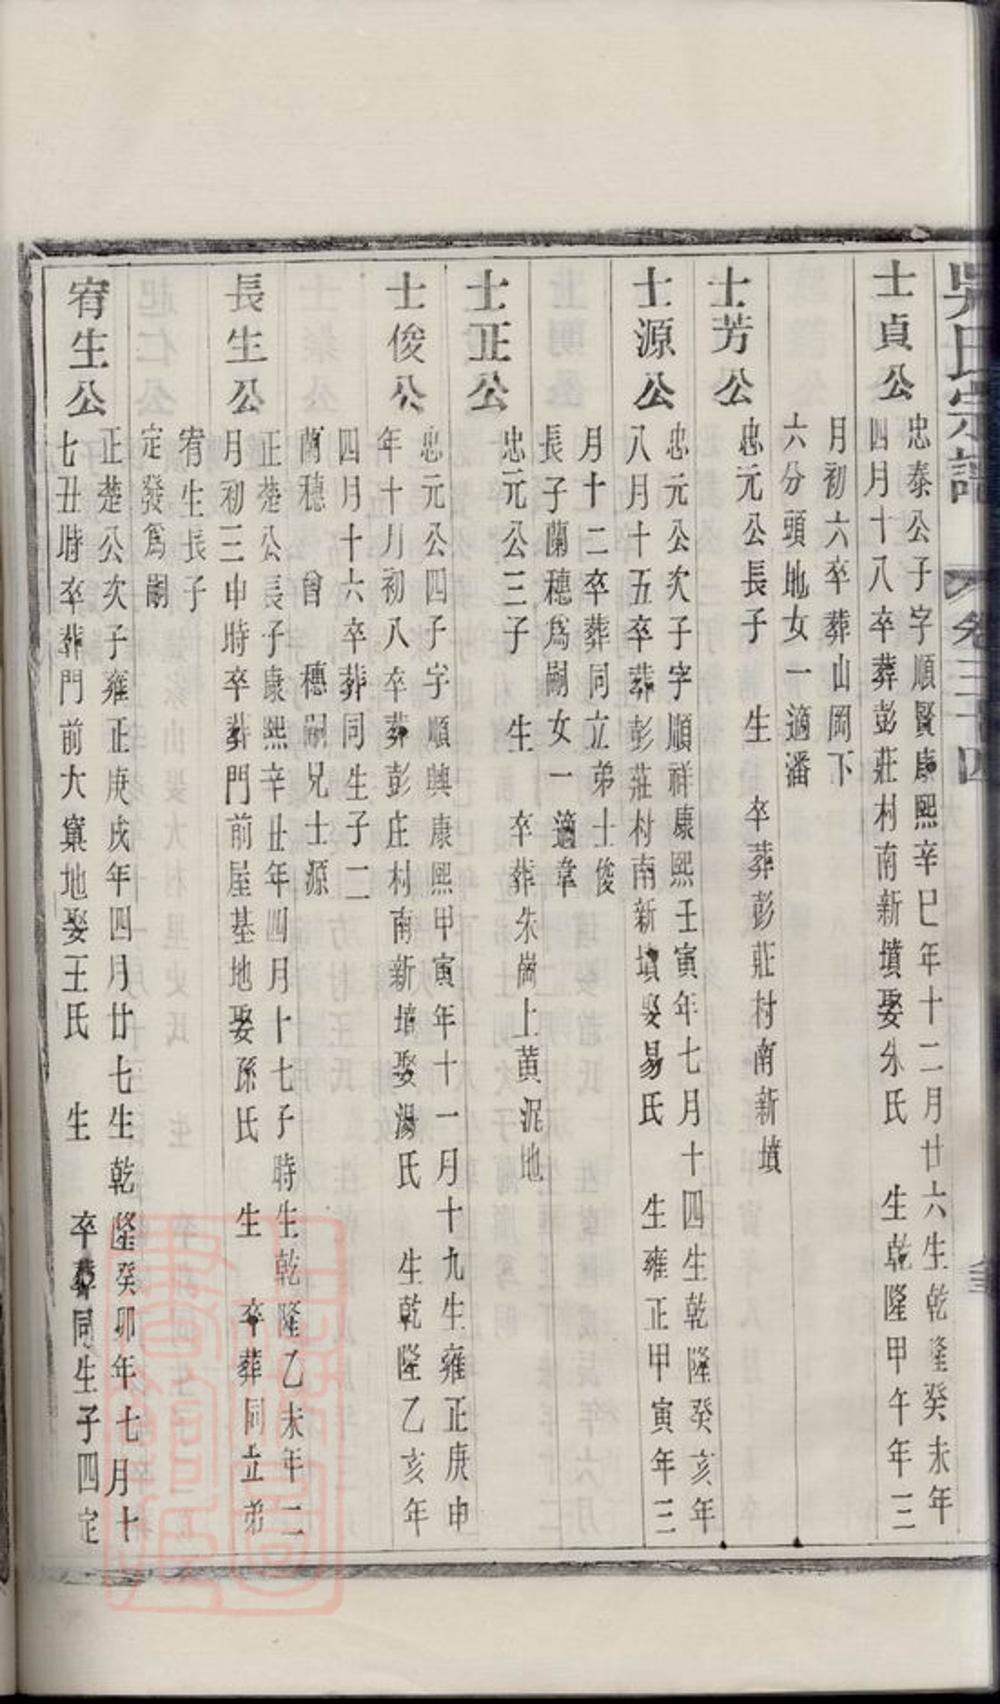 吳氏宗譜 卷三十四
士貞公
忠泰公子字順賢康熙辛巳年十二月廿六生乾隆癸未年
四月十八卒葬彭莊村南新墳娶朱氏 生乾隆甲午年三
月初六卒葬山岡下
六分頭地女一適潘
士芳公
忠元公長子 生 卒葬彭莊村南新墳
士源公
忠元公次子字順祥康熙壬寅年七月十四生乾隆癸亥年
八月十五卒葬彭莊村南新墳娶易氏 生雍正甲寅年三
月十二卒葬同立弟士俊
長子蘭穗爲嗣女一適韋
士正公
忠元公三子 生 卒葬朱崗上黄泥地
士俊公
忠元公四子字順興康熙甲寅年十一月十九生雍正庚申
年十月初八卒葬彭庄村南新墳娶湯氏 生乾隆乙亥年
四月十六卒葬同生子二
蘭穗 曾 穗嗣兄士源
長生公
正楚公長子康熙辛丑年四月十七子時生乾隆乙未年二
月初三申時卒葬門前屋基地娶孫氏 生 卒葬同立弟
宥生長子
定發爲嗣
宥生公
正楚公次子雍正庚戌年四月廿七生乾隆癸卯年七月十
七丑時卒葬門前大窠地娶王氏 生 卒葬同生子四定